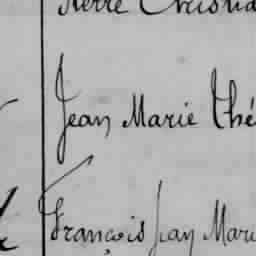 Pierre Christia
Jean Marie Thé
François Jean Mari